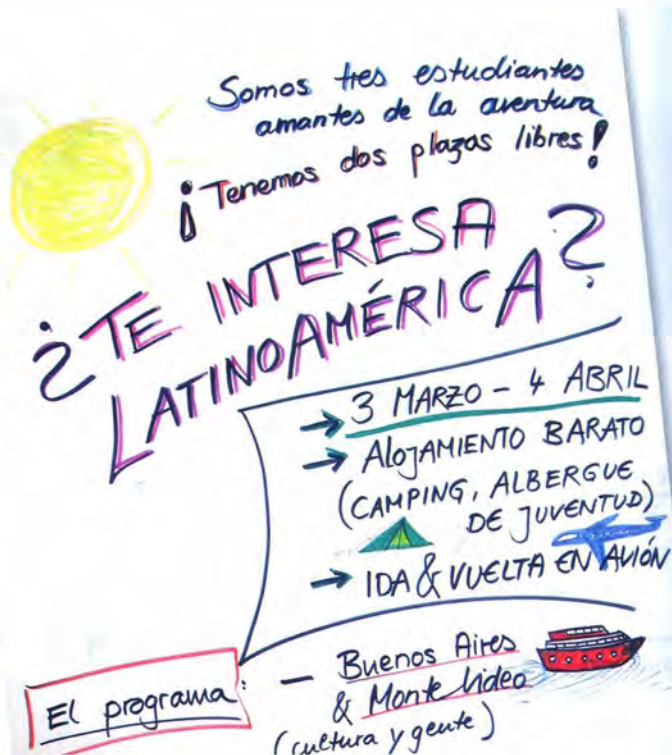 Somos tres estudiantes
amantes de la aventura
¡Tenemos dos plazas libres!
¿TE INTERESA
LATINOAMÉRICA?
→ 3 MARZO - 4 ABRIL
→ ALOJAMIENTO BARATO
(CAMPING, ALBERGUE
DE JUVENTUD)
→ IDA & VUELTA EN AVIÓN
El programa:
- Buenos Aires
& Monte Video
(cultura y gente)